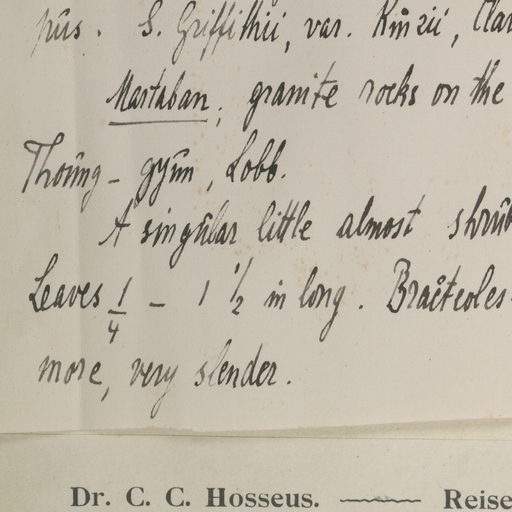 pus. S. Griffithii, var. Kurzii, Clar
Martaban; granite rocks on the
Thoung-gyun, Lobb.
A singular little almost shrub
Leaves 1/4 - 1 1/2 in long. Bracteoles
more, very slender.
Dr. C. C. Hosseus. Reise